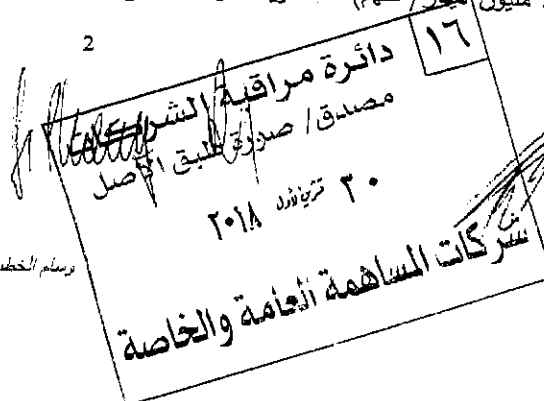 مليون
2
١٦
دائرة مراقبة الشركات
مصدق / صورة طبق الأصل
٣٠ تشرين أول ٢٠١٨
شركات المساهمة العامة والخاصة
وسام